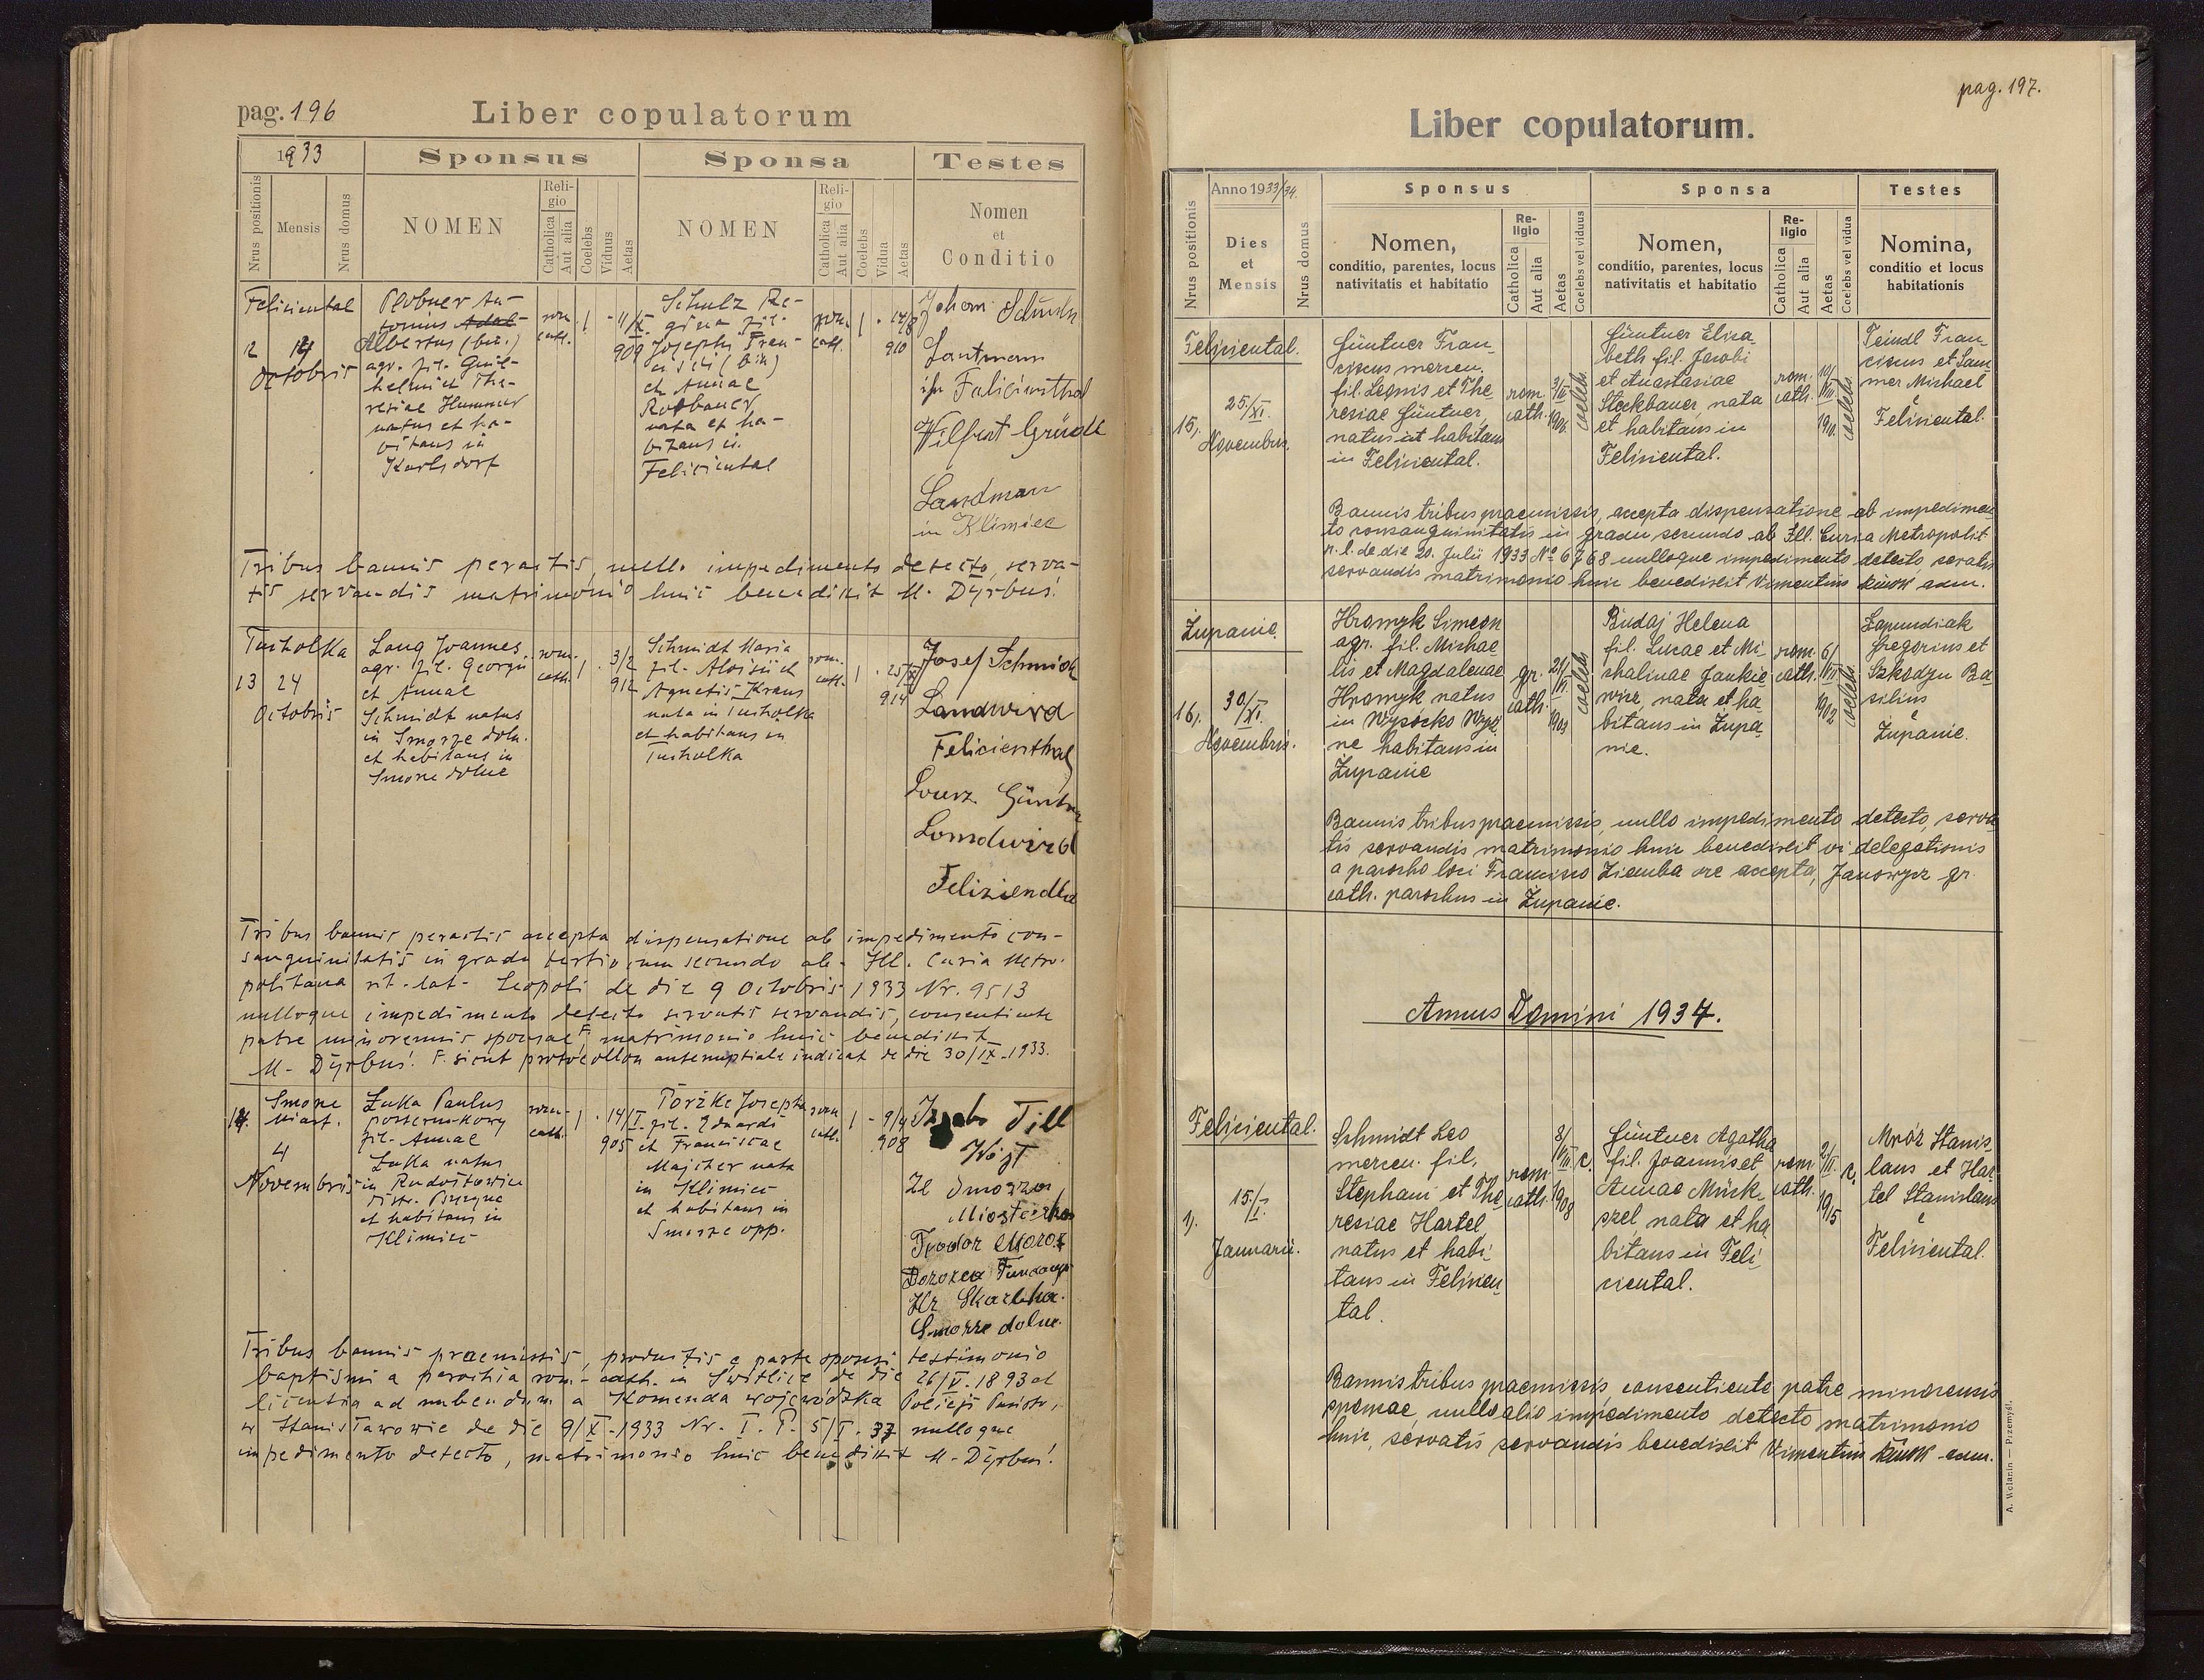 pag. 196
Liber copulatorum
1933
Sponsus
Sponsa
Testes
Nrus positionis
Mensis
Nrus domus
NOMEN
Religio
Catholica
Aut alia
Coelebs
Viduus
Aetas
NOMEN
Religio
Catholica
Aut alia
Coelebs
Vidua
Aetas
Nomen
et
Conditio
Feliciental
12 14
Octobris
An-
tonius
Albertus (bin.)
agr. fil. Guil-
helmi et The-
resiae Hummer
natus et ha-
bitans in
Karlsdorf
rom.
cath.
1
11/X
909
Schulz Re-
gina fil.
Josephi Fran-
cisci (bin)
et Annae
Rossbauer
nata et ha-
bitans in
Feliciental
rom.
cath.
1
14/8
910
Johan
Lantmann
in Falicinthal
Wilfrat
Landman
in Klimiec
Tribus bannis peractis, nullo impedimento detecto, serva-
tis servandis matrimonio huic benedixit M. Dyrbuś!
Tucholka
13 24
Octobris
Lang Joannes
agr. fil. Georgii
et Annae
Schmidt natus
in Smorze doln.
et habitans in
Smorze dolne
rom.
cath.
1
3/2
912
Schmidt Maria
fil. Aloisii et
Agnetis Kraus
nata in Tucholka
et habitans in
Tucholka
rom.
cath.
1
25/X
914
Josef Schmidt
Landwird
Felicienthal
Lorenz Günther
Lomdwird
Feliziendha
Tribus bannis peractis accepta dispensatione ab impedimento con-
sanguinitatis in gradu tertio cum secundo ab Ill. Curia Metro-
politana rit. lat. Leopoli de die 9 Octobris 1933 Nr. 9513
nulloque impedimento detecto servatis servandis, consentiente
patre minorennis sponsae F. matrimonio huic benedixit
M. Dyrbuś! F. sicut protocollon antenuptiale indicat de die 30/IX-1933.
14.
Smorze
Miast.
4
Novembris
Zulla Paulus
posterunkowy
fil. Annae
Zulla natus
in
distr.
et habitans in
Klimiec
rom.
cath.
1
14/I
905
Pörżke Josepha
fil. Eduardi
et Franciscae
Majcher nata
in Klimiec
et habitans in
Smorze opp.
rom
cath.
1
9/4
908
Jzydor Till
Wójt
Zl Smorza
Miasteczka
Teodor Moroz
Dozorca
Hr Skarbka.
Smorze dolne.
Tribus bannis praemissis, productis e parte sponsi testimonio
baptismi a parochia rom.-cath. in Świtlice de die 26/V. 1893 et
licentia ad nubendum a Komenda wojewódzka Policji Państw.
w Stanisławowie de die 9/X-1933 Nr. I. P. 5/I. 33 nulloque
impedimento detecto, matrimonio huic benedixit M. Dyrbuś!
pag. 197.
Liber copulatorum.
Anno 1933/34.
Sponsus
Sponsa
Testes
Nrus positionis
Dies
et
Mensis
Nrus domus
Nomen,
conditio, parentes, locus
nativitatis et habitatio
Religio
Catholica
Aut alia
Aetas
Coelebs vel viduus
Nomen,
conditio, parentes, locus
nativitatis et habitatio
Religio
Catholica
Aut alia
Aetas
Coelebs vel vidua
Nomina,
conditio et locus
habitationis
Feliciental.
15).
25/XI.
Novembris.
Güntner Fran-
ciscus mercen.
fil. Leonis et The-
resiae Güntner,
natus et habitans
in Feliciental.
rom.
cath.
1906.
coelebs
Güntner Elisa-
beth fil. Jacobi
et Anastasiae
Steckbauer, nata
et habitans in
Feliciental.
rom.
cath.
10/VIII.
1911.
coelebs
Teindl Fran-
ciscus et Sam-
mer Michael
é
Feliciental.
Bannis tribus praemissis, accepta dispensatione ab impedimen-
to consanguinitatis in gradu secundo ab Ill. Curia Metropolit.
r. l. de die 20. Julii 1933 No 6768 nulloque impedimento detecto, servatis
servandis matrimonio huic benedixit Vincentius Kinow adm.
Żupanie.
16).
30/XI.
Novembris.
Hromyk Simeon
agr. fil. Michae-
lis et Magdalenae
Hromyk natus
in Wysocko Wyż-
ne habitans in
Żupanie
gr.
cath.
1903
coelebs
Budaj Helena
fil. Lucae et Mi-
chalinae Jankie-
wicz, nata et ha-
bitans in Żupa-
nie.
rom.
cath.
6/VII
1902
coelebs
Łapundiak
Gregorius et
Szkodyn Ba-
silius
é
Żupanie.
Bannis tribus praemissis, nullo impedimento detecto, serva-
tis servandis matrimonio huic benedixit vi delegationis
a parocho loci Francisco Ziemba ore accepta, Janowycz gr.
cath. parochus in Żupanie.
Annus Domini 1934.
Feliciental.
1).
15/I.
Januarii.
Schmidt Leo
mercen. fil.
Stephani et The-
resiae Hartel
natus et habi-
tans in Felicien-
tal.
rom.
cath.
8/VIII.
1908
c.
Güntner Agatha
fil. Joannis et
Annae Mück-
szel nata et ha-
bitans in Feli-
ciental.
rom.
cath.
2/II.
1915
c.
Mróz Stanis-
laus et Har-
tel Stanislaus
é
Feliciental.
Bannis tribus praemissis, consentiente patre minorennis
sponsae, nullo alio impedimento detecto matrimonio
huic, servatis servandis benedixit Vincentius Kinow adm.
A. Wolanin — Przemyśl.